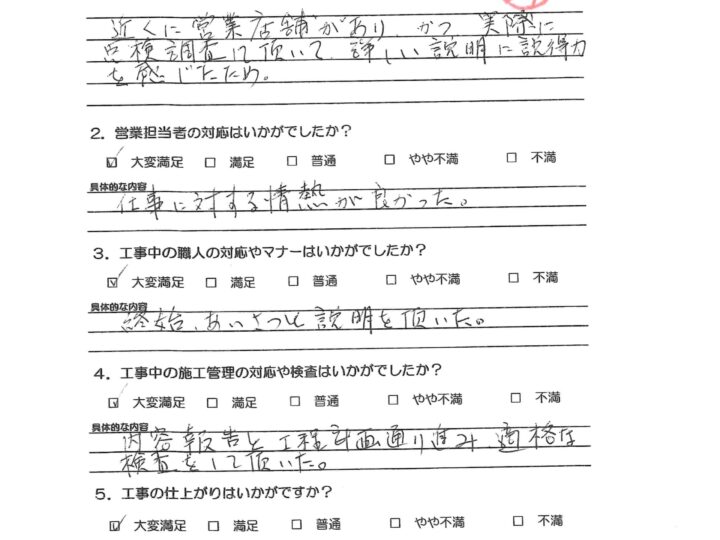 近くに営業店舗があり、かつ実際に
点検調査して頂いて、詳しい説明に説得力
を感じたため。
2. 営業担当者の対応はいかがでしたか？
☑ 大変満足 □ 満足 □ 普通 □ やや不満 □ 不満
具体的な内容
仕事に対する情熱が良かった。
3. 工事中の職人の対応やマナーはいかがでしたか？
☑ 大変満足 □ 満足 □ 普通 □ やや不満 □ 不満
具体的な内容
終始、あいさつと説明を頂いた。
4. 工事中の施工管理の対応や検査はいかがでしたか？
☑ 大変満足 □ 満足 □ 普通 □ やや不満 □ 不満
具体的な内容
内容報告と工程計画通り進み、適格な
検査をして頂いた。
5. 工事の仕上がりはいかがですか？
☑ 大変満足 □ 満足 □ 普通 □ やや不満 □ 不満